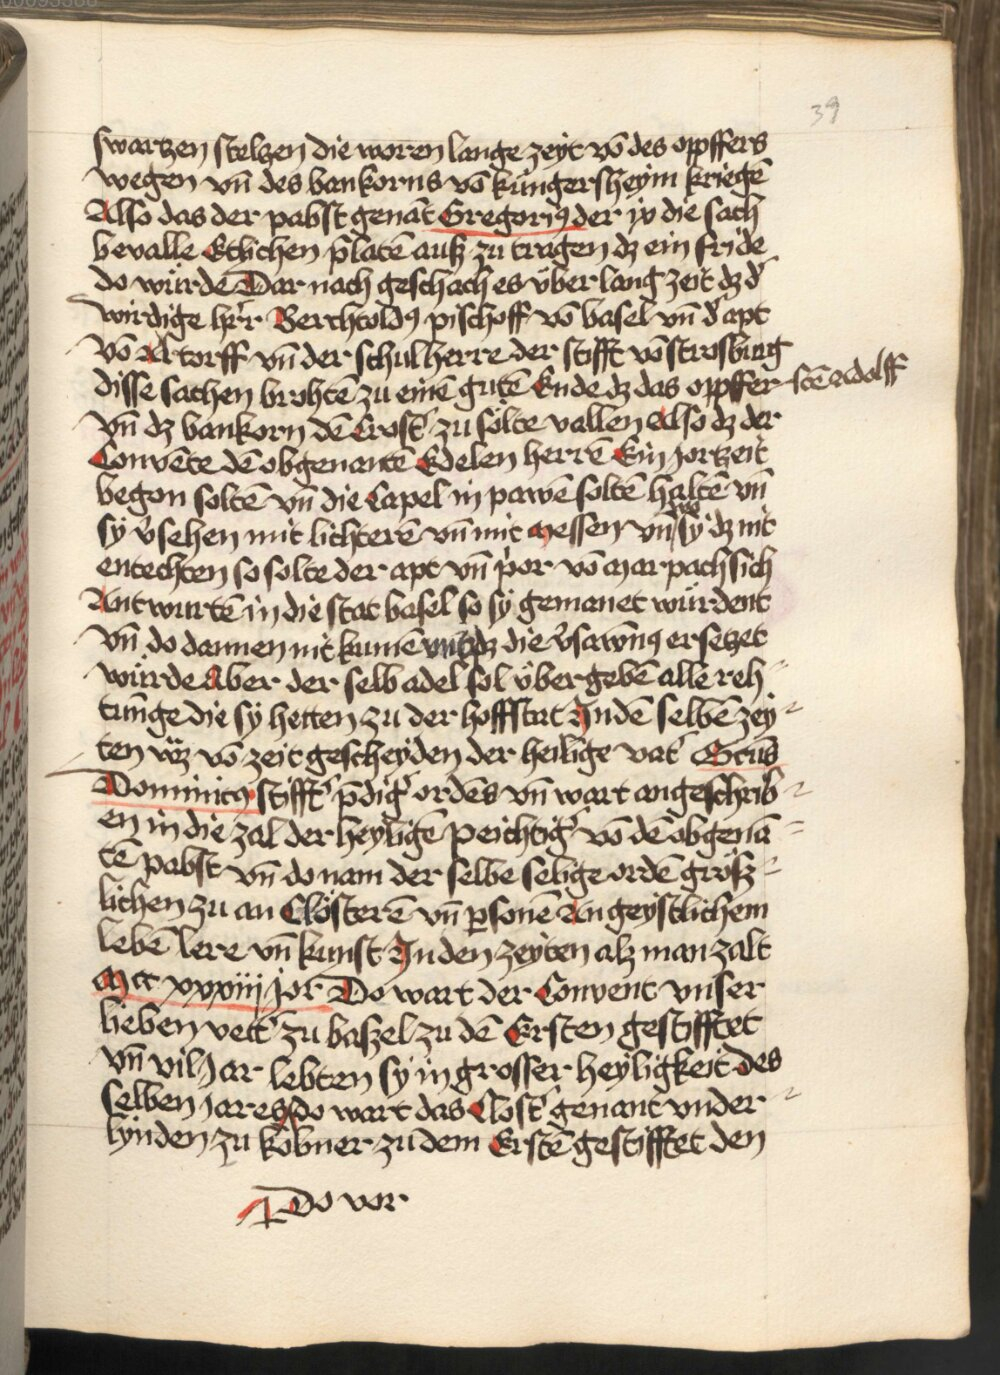 39
swartzen stelzen die woren lange zeyt vō des opffers
wegen vn̄ des bankorns vō kungersheym kriegē
Also das der pabst genāt Gregoriꝯ der ix die sach
bevalle Etlichen p̄latē auß zu tragen dz ein fride
do würde Dar nach geschach es v̈ber lang zeit dz dʼ
wirdige hʼr Berchtoldꝯ pischoff vō basel vn̄ dʼ apt
vō Altorff vn̄ der schulherre der stifft vō strosburg
disse sachen brohtē zu einē gutē Ende dz das opffer
vn̄ dz bankorn dē Clostʼ zu sölte vallen Also dz der
Convēte dē obgenantē Edelen herrē Ein jortzeit
begon soltē vn̄ die Capel in pawē soltē haltē vn̄
sÿ vʼsehen mit lichterē vn̄ mit messen vn̄ wo sÿ dz nit
entechten so solte der apt vn̄ pʼor vō marpach sich
Antwurtē in die stat basel so sÿ gemanet würdent
vn̄ do dannen nit kumē dz die vʼsawm̄nꝯ ersetzet
würde Aber der selb adel sol v̈ber gebē alle reh
tunge die sÿ hetten zu der hoffstat In dē selbē zey
ten wz vō zeit gescheyden der heilige vatʼ Sctūs
Dominicꝯ stifftʼ p̄digʼ ordēs vn̄ wart angeschrib
en in die zal der heyligē peichtigʼ vō dē obgenā
tē pabst vn̄ do nam der selbe selige ordē größ
lichen zu an Clösterē vn̄ ꝑsonē An geystlichem
lebē lere vn̄ kunst In den zeyten alz man zalt
Mcc xxxiij jor Do wart der Convent vnser
lieben vettʼ zu baßel zu dē Ersten gestifftet
vn̄ vil Jar lebten sy in grosser heyligkeit des
selben jares do wart das Clostʼ genant vnder
lynden zu kobner zu dem Erstē gestifftet den
Do vor